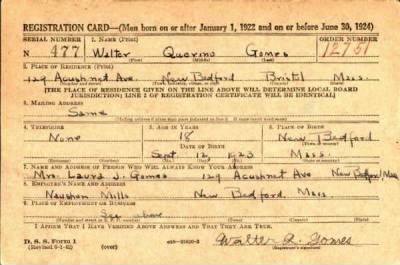 REGISTRATION CARD—(Men born on or after January 1, 1922 and on or before June 30, 1924)
SERIAL NUMBER 1. NAME (Print) ORDER NUMBER
N 477 Walter Quorino Gomes 12751
(First) (Middle) (Last)
2. PLACE OF RESIDENCE (Print)
129 Acushnet Ave. New Bedford Bristol Mass.
[THE PLACE OF RESIDENCE GIVEN ON THE LINE ABOVE WILL DETERMINE LOCAL BOARD
JURISDICTION; LINE 2 OF REGISTRATION CERTIFICATE WILL BE IDENTICAL]
3. MAILING ADDRESS
Same
[Mailing address if other than place indicated on line 2. If same insert word same]
4. TELEPHONE 5. AGE IN YEARS 6. PLACE OF BIRTH
None 18 New Bedford
DATE OF BIRTH
Sept 12, 1923 Mass.
7. NAME AND ADDRESS OF PERSON WHO WILL ALWAYS KNOW YOUR ADDRESS
Mrs. Laura J. Gomes 129 Acushnet Ave New Bedford Mass
8. EMPLOYER'S NAME AND ADDRESS
Naushon Mills New Bedford, Mass.
9. PLACE OF EMPLOYMENT OR BUSINESS
See above
I AFFIRM THAT I HAVE VERIFIED ABOVE ANSWERS AND THAT THEY ARE TRUE.
D. S. S. Form 1
(Revised 6-1-42) (over) Walter Q. Gomes
(Registrant's signature)